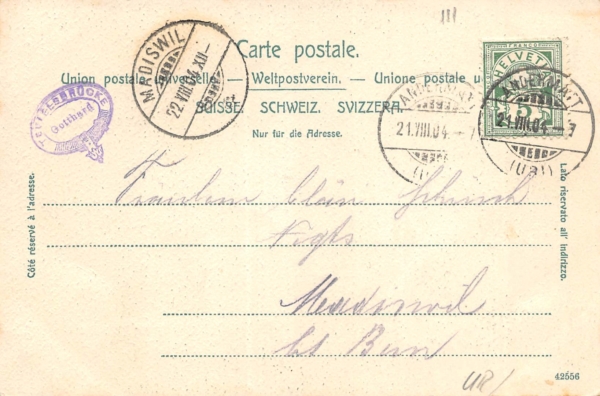 Carte postale.
Union postale universelle. — Weltpostverein. — Unione postale u
SUISSE. SCHWEIZ. SVIZZERA.
Nur für die Adresse.
MADISWIL
22.VIII.04.XII—
TEUFELSBRÜCKE
Gotthard
HELVETIA
FRANCO
5
ANDERMATT
21.VIII.04.–7
(URI)
ANDERMATT
21.VIII.04.–7
(URI)
Côté réservé à l'adresse.
Lato riservato all' indirizzo.
Fräulein
Madiswil
Ct Bern
42556